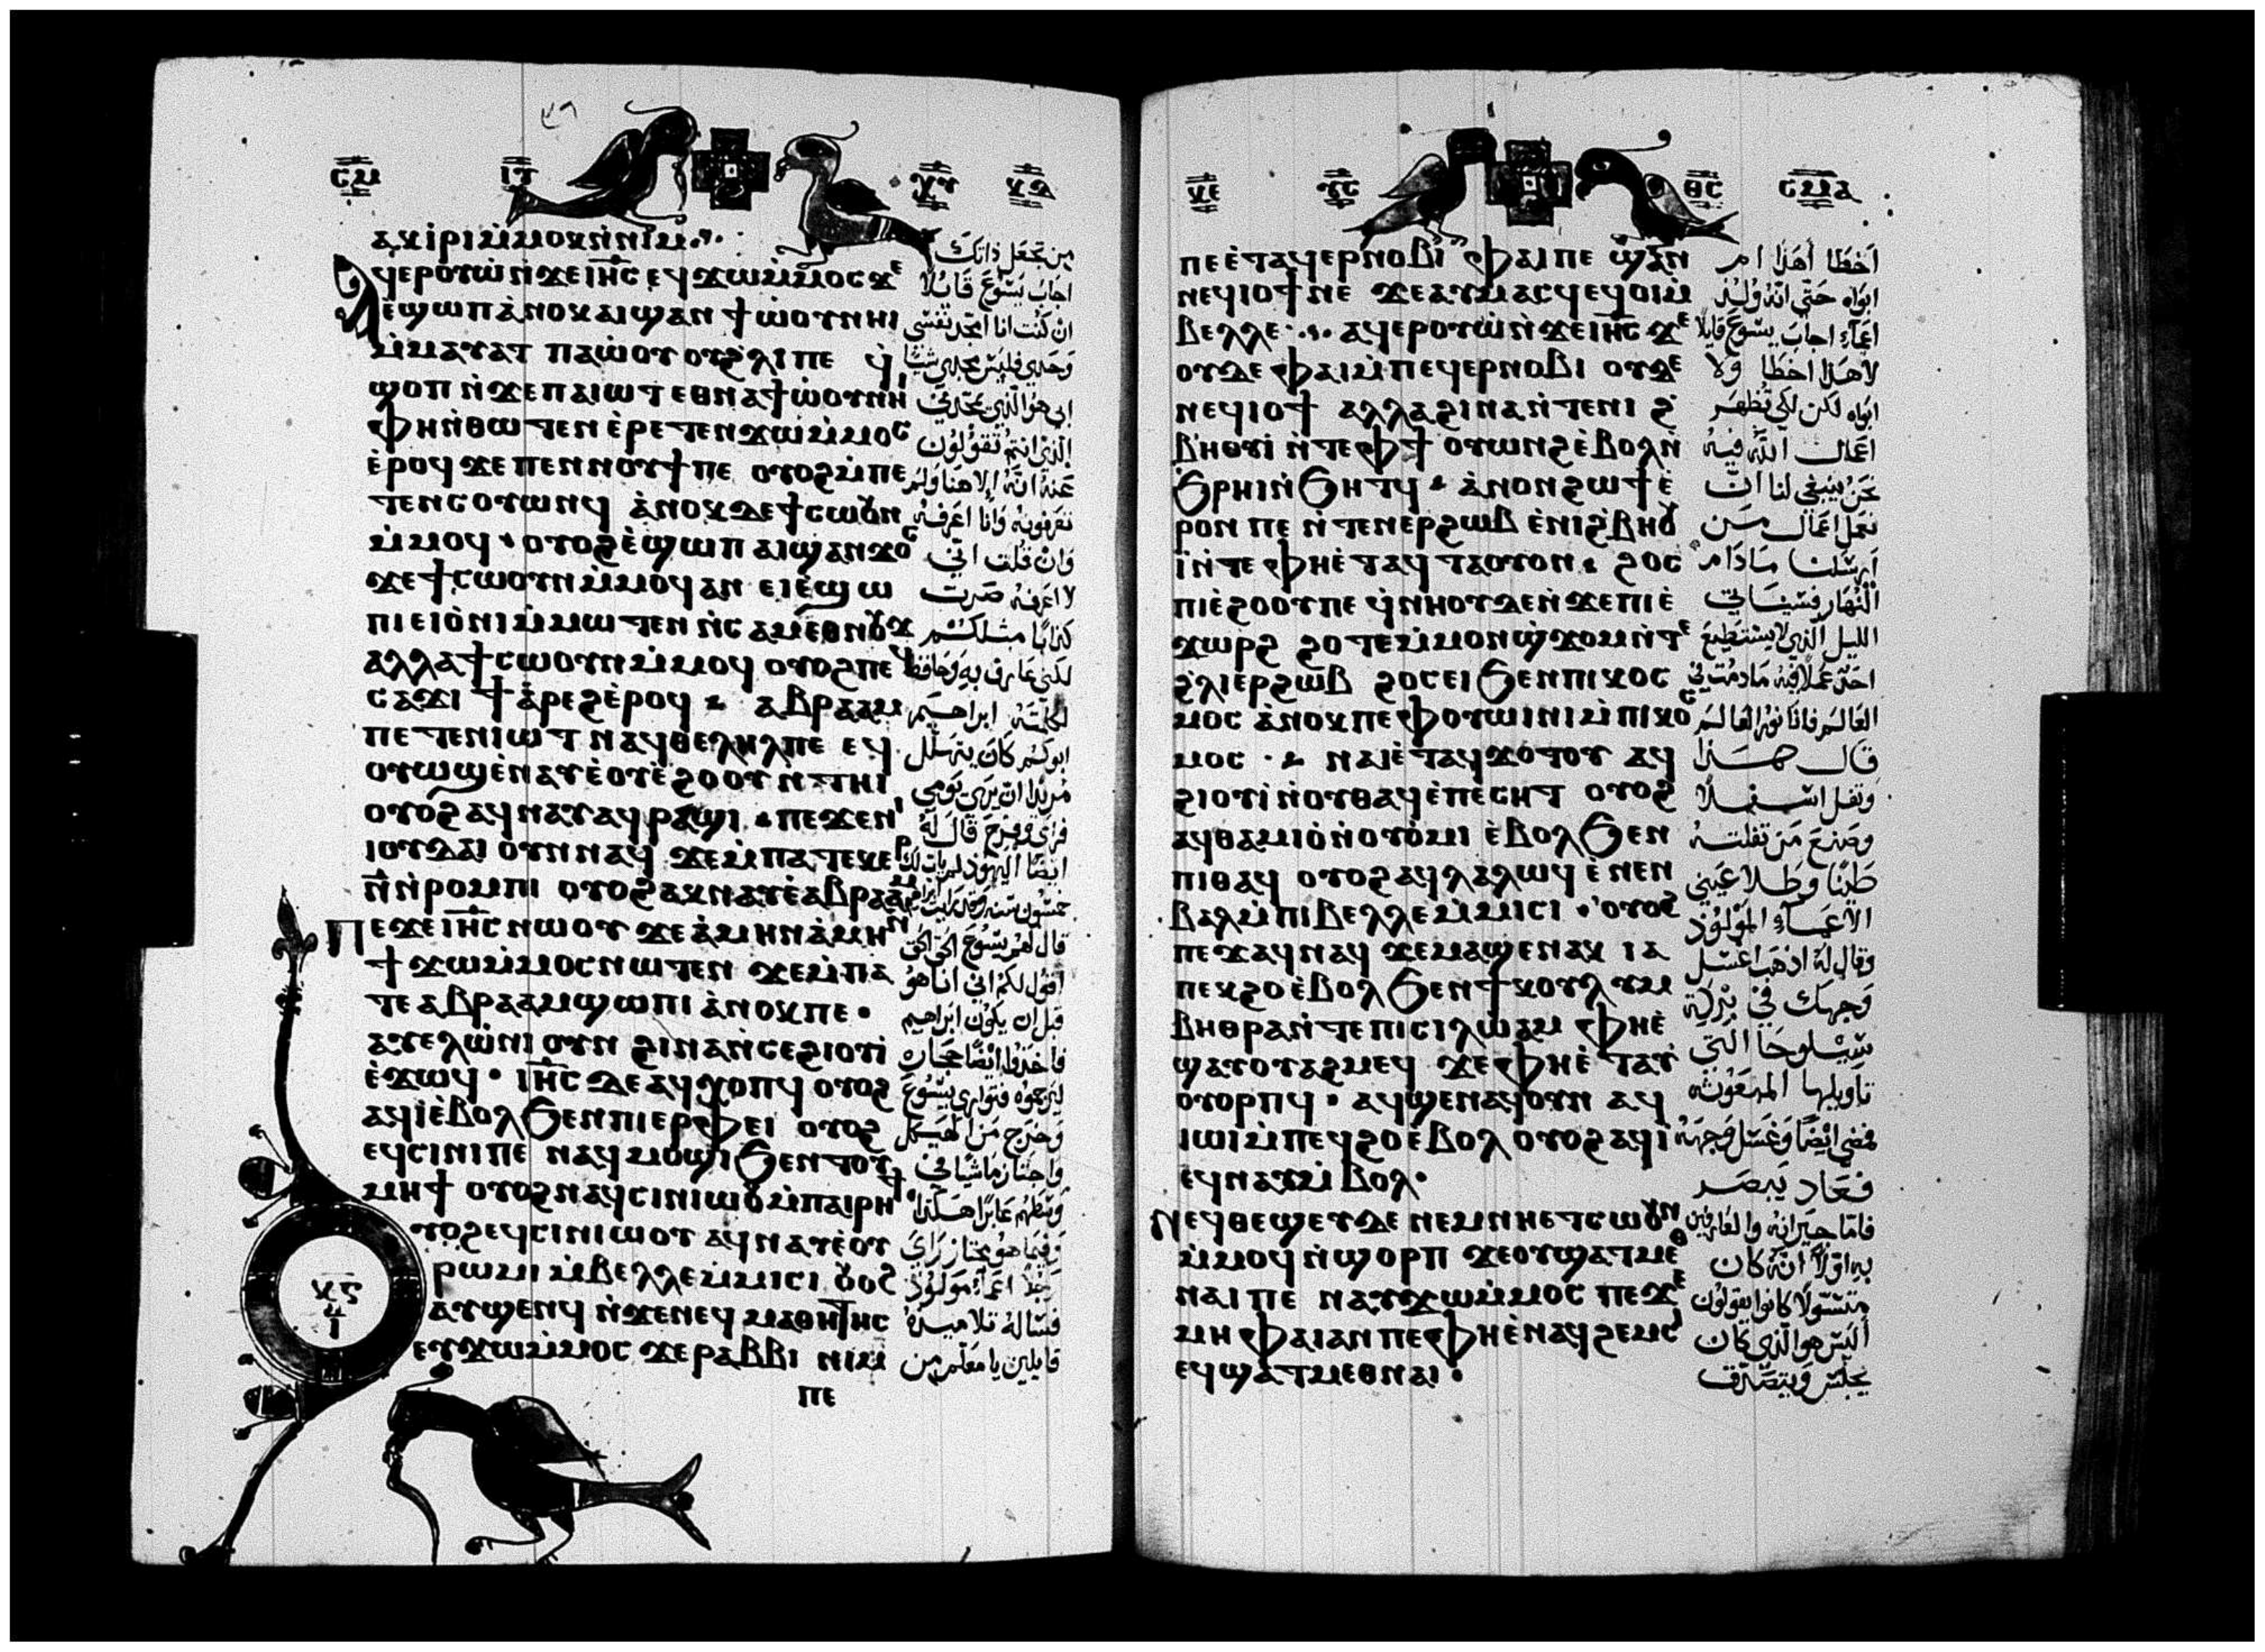 ⲥⲙ ⲓⲩ ⲭⲩ ⲭⲁ
ⲁⲕⲓⲣⲓ ⲙ̇ⲙⲟⲕ ⲛ̇ⲛⲓⲙ
ⲁϥⲉⲣⲟⲩⲱ̇ ⲛ̇ϫⲉ ⲓⲏ̅ⲥ̅ ⲉϥϫⲱ ⲙ̇ⲙⲟⲥ ϫⲉ
ⲉϣⲱⲡ ⲁ̇ⲛⲟⲕ ⲁⲓϣⲁⲛϯⲱ̇ⲟⲩ ⲛⲏⲓ
ⲙ̇ⲙⲁⲩⲁⲧ ⲡⲁⲱ̇ⲟⲩ ⲟⲩϩ̇ⲗⲓ ⲡⲉ ϥ̇
ϣⲟⲡ ⲛ̇ϫⲉ ⲡⲁⲓⲱⲧ ⲉⲑⲛⲁϯⲱ̇ⲟⲩ ⲛⲏⲓ
ⲫⲏ ⲛ̇ⲑⲱⲧⲉⲛ ⲉ̇ⲣⲉⲧⲉⲛϫⲱ ⲙ̇ⲙⲟⲥ
ⲉ̇ⲣⲟϥ ϫⲉ ⲡⲉⲛⲛⲟⲩϯ ⲡⲉ ⲟⲩⲟϩ ⲙ̇ⲡⲉ
ⲧⲉⲛⲥⲟⲩⲱⲛϥ ⲁ̇ⲛⲟⲕ ⲇⲉ ϯⲥⲱⲟⲩⲛ
ⲙ̇ⲙⲟϥ ⲟⲩⲟϩ ⲉ̇ϣⲱⲡ ⲁⲓϣⲁⲛϫⲟⲥ
ϫⲉ ϯⲥⲱⲟⲩⲛ ⲙ̇ⲙⲟϥ ⲁⲛ ⲉⲓⲉ̇ϣⲱ
ⲡⲓ ⲉⲓⲟ̇ⲛⲓ ⲙ̇ⲙⲱⲧⲉⲛ ⲛ̇ⲥⲁⲙⲉⲑⲛⲟⲩϫ
ⲁⲗⲗⲁ ϯⲥⲱⲟⲩⲛ ⲙ̇ⲙⲟϥ ⲟⲩⲟϩ ⲡⲉϥ
ⲥⲁϫⲓ ϯⲁ̇ⲣⲉϩ ⲉ̇ⲣⲟϥ ⲁⲃⲣⲁⲁⲙ
ⲡⲉⲧⲉⲛⲓⲱⲧ ⲛⲁϥⲑⲉⲗⲏⲗ ⲡⲉ ⲉϥ
ⲟⲩⲱϣ ⲉ̇ⲛⲁⲩ ⲉ̇ⲟⲩⲉ̇ϩⲟⲟⲩ ⲛ̇ⲧⲏⲓ
ⲟⲩⲟϩ ⲁϥⲛⲁⲩ ⲁϥⲣⲁϣⲓ ⲡⲉϫⲉ ⲛⲓ
ⲓⲟⲩⲇⲁⲓ ⲟⲩⲛ ⲛⲁϥ ϫⲉ ⲙ̇ⲡⲁⲧⲉⲕⲉⲣ
ⲛ̅ ⲛ̇ⲣⲟⲙⲡⲓ ⲟⲩⲟϩ ⲁⲕⲛⲁⲩ ⲉ̇ⲁⲃⲣⲁⲁⲙ
ⲡⲉϫⲉ ⲓⲏ̅ⲥ̅ ⲛⲱⲟⲩ ϫⲉ ⲁ̇ⲙⲏⲛ ⲁ̇ⲙⲏⲛ
ϯϫⲱ ⲙ̇ⲙⲟⲥ ⲛⲱⲧⲉⲛ ϫⲉ ⲙ̇ⲡⲁ
ⲧⲉ ⲁⲃⲣⲁⲁⲙ ϣⲱⲡⲓ ⲁ̇ⲛⲟⲕ ⲡⲉ
ⲁⲩⲉⲗⲱ̇ⲛⲓ ⲟⲩⲛ ϩⲓⲛⲁ ⲛ̇ⲥⲉϩⲓⲟⲩⲓ̇
ⲉ̇ϫⲱϥ ⲓⲏ̅ⲥ̅ ⲇⲉ ⲁϥⲭⲟⲡϥ ⲟⲩⲟϩ
ⲁϥⲓ̇ ⲉ̇ⲃⲟⲗ ϧⲉⲛ ⲡⲓⲉⲣⲫⲉⲓ ⲟⲩⲟϩ
ⲉϥⲥⲓⲛⲓ ⲡⲉ ⲛⲁϥⲙⲟϣⲓ ϧⲉⲛ ⲧⲟⲩ
ⲙⲏϯ ⲟⲩⲟϩ ⲛⲁϥⲥⲓⲛⲓⲱⲟⲩ ⲙ̇ⲡⲁⲓⲣⲏϯ
ⲟⲩⲟϩ ⲉϥⲥⲓⲛⲓⲱⲟⲩ ⲁϥⲛⲁⲩ ⲉ̇ⲟⲩ
ⲣⲱⲙⲓ ⲙ̇ⲃⲉⲗⲗⲉ ⲙ̇ⲙⲓⲥⲓ ⲟⲩⲟϩ
ⲁⲩϣⲉⲛϥ ⲛ̇ϫⲉ ⲛⲉϥⲙⲁⲑⲏⲧⲏⲥ
ⲉⲩϫⲱ ⲙ̇ⲙⲟⲥ ϫⲉ ⲣⲁⲃⲃⲓ ⲛⲓⲙ
ⲡⲉ
من تجعل ذاتك
اجاب يسوع قايلا
ان كنت انا امجد نفسى
وحدى فليس مجدى شيئا
ابى هو الذى يمجدنى
الذى انتم تقولون
عنه انه الاهنا ولم
تعرفونه وانا اعرفه
وان قلت انى
لا اعرفه صرت
كذابا مثلكم
لكنى عارف به وحافظ
لكلمته ابراهيم
ابوكم كان يتهلل
مريدا ان يرى يومى
فراى وفرح قال له
ايضا اليهود لم يات لك
خمسون سنه وقد رايت ابراهيم
قال لهم يسوع الحق الحق
اقول لكم انى انا هو
قبل ان يكون ابراهيم
فاخذوا ايضا حجاره
ليرجموه فتوارى يسوع
وخرج من الهيكل
واجتاز ماشيا فى
وسطهم عابرا هكذا
وفيما هو مجتاز راى
رجلا اعمى مولود
فساله تلاميذه
قايلين يا معلم من
ⲭⲉ ⲩⲥ ⲑⲥ ⲥⲙⲁ
ⲡⲉ ⲉ̇ⲧⲁϥⲉⲣⲛⲟⲃⲓ ⲫⲁⲓ ⲡⲉ ϣⲁⲛ
ⲛⲉϥⲓⲟϯ ⲛⲉ ϫⲉ ⲁⲩⲙⲁⲥϥ ⲉϥⲟⲓ ⲙ̇
ⲃⲉⲗⲗⲉ ⲁϥⲉⲣⲟⲩⲱ̇ ⲛ̇ϫⲉ ⲓⲏ̅ⲥ̅ ϫⲉ
ⲟⲩⲇⲉ ⲫⲁⲓ ⲙ̇ⲡⲉϥⲉⲣⲛⲟⲃⲓ ⲟⲩⲇⲉ
ⲛⲉϥⲓⲟϯ ⲁⲗⲗⲁ ϩⲓⲛⲁ ⲛ̇ⲧⲉ ⲛⲓϩ̇
ⲃⲏⲟⲩⲓ̇ ⲛ̇ⲧⲉ ⲫϯ ⲟⲩⲱⲛϩ ⲉ̇ⲃⲟⲗ ⲛ̇
ϧⲣⲏⲓ ⲛ̇ϧⲏⲧϥ ⲁ̇ⲛⲟⲛ ϩⲱϯ ⲉ̇
ⲣⲟⲛ ⲡⲉ ⲛ̇ⲧⲉⲛⲉⲣϩⲱⲃ ⲉ̇ⲛⲓϩ̇ⲃⲏⲟⲩ
ⲓ̇ ⲛ̇ⲧⲉ ⲫⲏ ⲉ̇ⲧⲁϥⲧⲁⲟⲩⲟⲛ ϩⲟⲥ
ⲡⲓⲉ̇ϩⲟⲟⲩ ⲡⲉ ϥ̇ⲛⲏⲟⲩ ⲇⲉ ⲛ̇ϫⲉ ⲡⲓⲉ̇
ϫⲱⲣϩ ϩⲟⲧⲉ ⲙ̇ⲙⲟⲛ ϣ̇ϫⲟⲙ ⲛ̇ⲧⲉ
ϩ̇ⲗⲓ ⲉⲣϩⲱⲃ ϩⲟⲥ ⲉⲓ ϧⲉⲛ ⲡⲓⲕⲟⲥ
ⲙⲟⲥ ⲁ̇ⲛⲟⲕ ⲡⲉ ⲫⲟⲩⲱⲓⲛⲓ ⲙ̇ⲡⲓⲕⲟⲥ
ⲙⲟⲥ ⲛⲁⲓ ⲉ̇ⲧⲁϥϫⲟ̇ⲧⲟⲩ ⲁϥ
ϩⲓⲟⲩⲓ̇ ⲛ̇ⲟⲩⲑⲁϥ ⲉ̇ⲡⲉⲥⲏⲧ ⲟⲩⲟϩ
ⲁϥⲑⲁⲙⲓⲟ̇ ⲛ̇ⲟⲩⲟ̇ⲙⲓ ⲉ̇ⲃⲟⲗ ϧⲉⲛ
ⲡⲓⲑⲁϥ ⲟⲩⲟϩ ⲁϥⲗⲁⲗⲱϥ ⲉ̇ⲛⲉⲛ
ⲃⲁⲗ ⲙ̇ⲡⲓⲃⲉⲗⲗⲉ ⲙ̇ⲙⲓⲥⲓ ⲟⲩⲟϩ
ⲡⲉϫⲁϥ ⲛⲁϥ ϫⲉ ⲙⲁϣⲉⲛⲁⲕ ⲓⲁ
ⲡⲉⲕϩⲟ ⲉ̇ⲃⲟⲗ ϧⲉⲛ ϯⲕⲟⲩⲗⲩⲙ
ⲃⲏⲑⲣⲁ ⲛ̇ⲧⲉ ⲡⲓⲥⲓⲗⲱⲁⲙ ⲫⲏ ⲉ̇
ϣⲁⲩⲟⲩⲁϩⲙⲉϥ ϫⲉ ⲫⲏ ⲉ̇ⲧⲁⲩ
ⲟⲩⲟⲣⲡϥ ⲁϥϣⲉⲛⲁϥ ⲟⲩⲛ ⲁϥ
ⲓⲱⲓ ⲙ̇ⲡⲉϥϩⲟ ⲉ̇ⲃⲟⲗ ⲟⲩⲟϩ ⲁϥⲓ̇
ⲉϥⲛⲁⲩ ⲙ̇ⲃⲟⲗ
ⲛⲉϥⲑⲉϣⲉⲩ ⲇⲉ ⲛⲉⲙ ⲛⲏ ⲉⲧⲥⲱⲟⲩⲛ
ⲙ̇ⲙⲟϥ ⲛ̇ϣⲟⲣⲡ ϫⲉ ⲟⲩϣⲁⲧⲙⲉⲑ
ⲛⲁⲓ ⲡⲉ ⲛⲁⲩϫⲱ ⲙ̇ⲙⲟⲥ ⲡⲉ ϫⲉ
ⲙⲏ ⲫⲁⲓ ⲁⲛ ⲡⲉ ⲫⲏ ⲉ̇ⲛⲁϥϩⲉⲙⲥⲓ
ⲉϥϣⲁⲧⲙⲉⲑⲛⲁⲓ
اخطا اهذا ام
ابواه حتى انه ولد
اعمى اجاب يسوع قايلا
لا هذا اخطا ولا
ابواه لكن لكى تظهر
اعمال الله فيه
نحن ينبغى لنا ان
نعمل اعمال من
ارسلنا مادام
النهار فسياتى
الليل الذى لا يستطيع
احد عملا فيه مادمت فى
العالم فانا نور العالم
قال هذا
وتفل اسفلا
وصنع من تفلته
طينا وطلا عينى
الاعمى المولود
وقال له اذهب اغسل
وجهك فى بركة
سيلوحا التى
تاويلها المبعوث
فمضى ايضا وغسل وجهه
فعاد يبصر
فاما جيرانه والعارفين
به اولا انه كان
متسولا كانوا يقولون
اليس هو الذى كان
يجلس ويتصدق